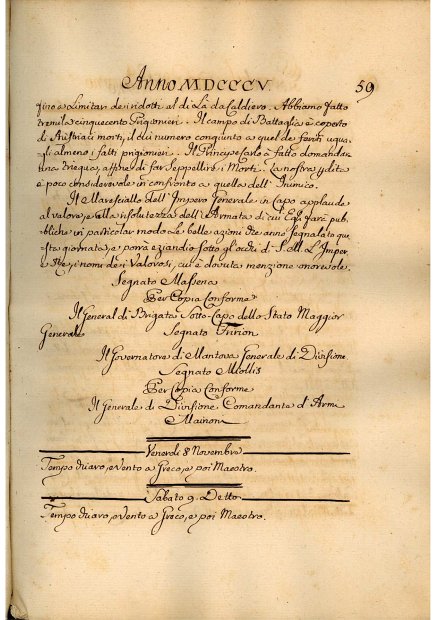 Anno MDCCCV. 59
fino a Limitar dei ridotti al di Là da Caldiero. Abbiamo fatto
tremila cinquecento Prigionieri. Il campo di Battaglia è coperto
di Austriaci morti, il di cui numero congiunto a quel de feriti ugua-
glia almeno i fatti prigionieri. Il Principe Carlo à fatto domandar
una triegua, affine di far Seppellire i Morti. La nostra perdita
è poco considerevole in confronto a quella dell' Inimico.
Il Maresciallo dell' Impero Generale in Capo applaude
al valore, e alla risolutezza dell' Armata di cui Egli farà pub-
bliche in particolar modo Le belle azioni che anno segnalato que-
sta giornata, e porrà eziandio sotto gl'occhi di S. M. L'Imper.
e Re, i nomi dei Valorosi, cui è dovuta menzione onorevole.
Segnato Massena
Per Copia Conforme
Il General di Brigata Sotto-Capo dello Stato Maggior
Generale Segnato Thirion
Il Governatore di Mantova Generale di Divisione
Segnato Miollis
Per Copia Conforme
Il Generale di Divisione Comandante d' Armi
Mainoni
Venerdì 8 Novembre
Tempo chiaro, e Vento a Greco, e poi Maestro.
Sabato 9. Detto
Tempo chiaro, e Vento a Greco, e poi Maestro.